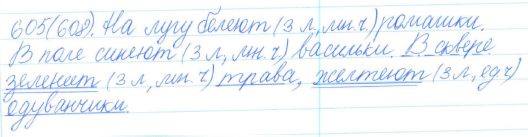 605(608). На лугу белеют (3 л., мн. ч.) ромашки.
В поле синеют (3 л., мн. ч) васильки. В сквере
зеленеет (3 л., мн. ч) трава, желтеют (3 л., ед ч)
одуванчики.